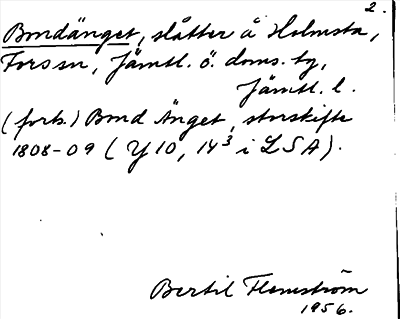 2.
Bondänget, slåtter å Holmsta,
Fors sn, Jämtl. ö. doms. tg,
Jämtl. l.
(forts.) Bond Änget, storskifte
1808-09 (Y 10, 14³ i LSA).
Bertil Flemström
1956.